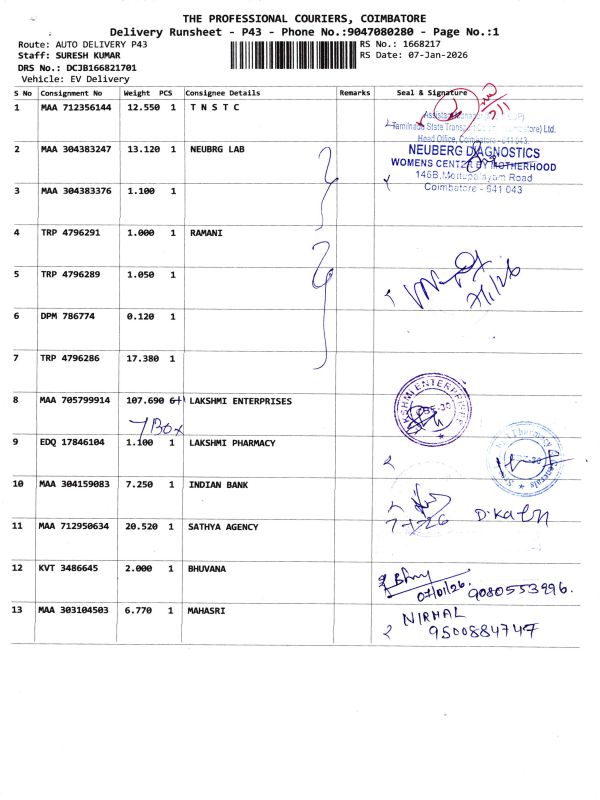 THE PROFESSIONAL COURIERS, COIMBATORE
Delivery Runsheet - P43 - Phone No.:9047080280 - Page No.:1
Route: AUTO DELIVERY P43 RS No.: 1668217
Staff: SURESH KUMAR RS Date: 07-Jan-2026
DRS No.: DCJB166821701
Vehicle: EV Delivery
S No Consignment No Weight PCS Consignee Details Remarks Seal & Signature
1 MAA 712356144 12.550 1 T N S T C
Tamilnadu State Transport Ltd.
Head Office, Coimbatore - 641 043.
2 MAA 304383247 13.120 1 NEUBRG LAB
NEUBERG DIAGNOSTICS
WOMENS CENTER BY MOTHERHOOD
146B, Mettupalayam Road
Coimbatore - 641 043
3 MAA 304383376 1.100 1
4 TRP 4796291 1.000 1 RAMANI
5 TRP 4796289 1.050 1
7/1/26
6 DPM 786774 0.120 1
7 TRP 4796286 17.380 1
8 MAA 705799914 107.690 6+1 LAKSHMI ENTERPRISES
7 Box
LAKSHMI ENTERPRISES
9 EDQ 17846104 1.100 1 LAKSHMI PHARMACY
10 MAA 304159083 7.250 1 INDIAN BANK
7-1-26
11 MAA 712950634 20.520 1 SATHYA AGENCY
12 KVT 3486645 2.000 1 BHUVANA
07/01/26. 9080553996.
13 MAA 303104503 6.770 1 MAHASRI
NIRMAL
9500884747